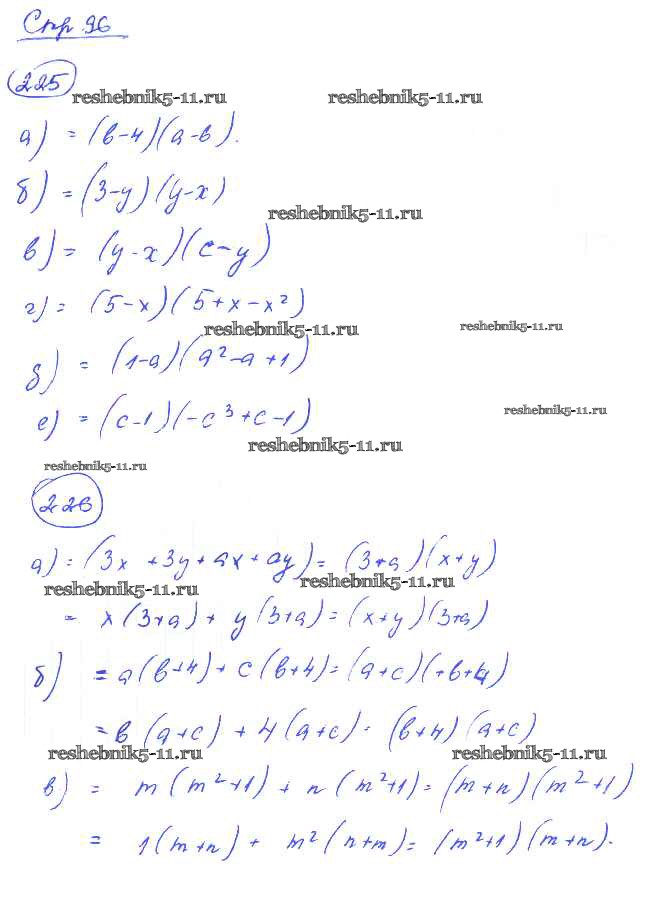 Стр. 96
225
reshebnik5-11.ru reshebnik5-11.ru
а) = (b-4)(a-b).
б) = (3-y)(y-x)
reshebnik5-11.ru
в) = (y-x)(c-y)
г) = (5-x)(5+x-x²)
reshebnik5-11.ru reshebnik5-11.ru
д) = (1-a)(a²-a+1)
е) = (c-1)(-c³+c-1)
reshebnik5-11.ru
reshebnik5-11.ru
reshebnik5-11.ru
226
а) = (3x+3y+ax+ay) = (3+a)(x+y)
reshebnik5-11.ru reshebnik5-11.ru
= x(3+a) + y(3+a) = (x+y)(3+a)
б) = a(b+4) + c(b+4) = (a+c)(+b+4)
= b(a+c) + 4(a+c) = (b+4)(a+c)
reshebnik5-11.ru reshebnik5-11.ru
в) = m(m²+1) + n(m²+1) = (m+n)(m²+1)
= 1(m+n) + m²(n+m) = (m²+1)(m+n).